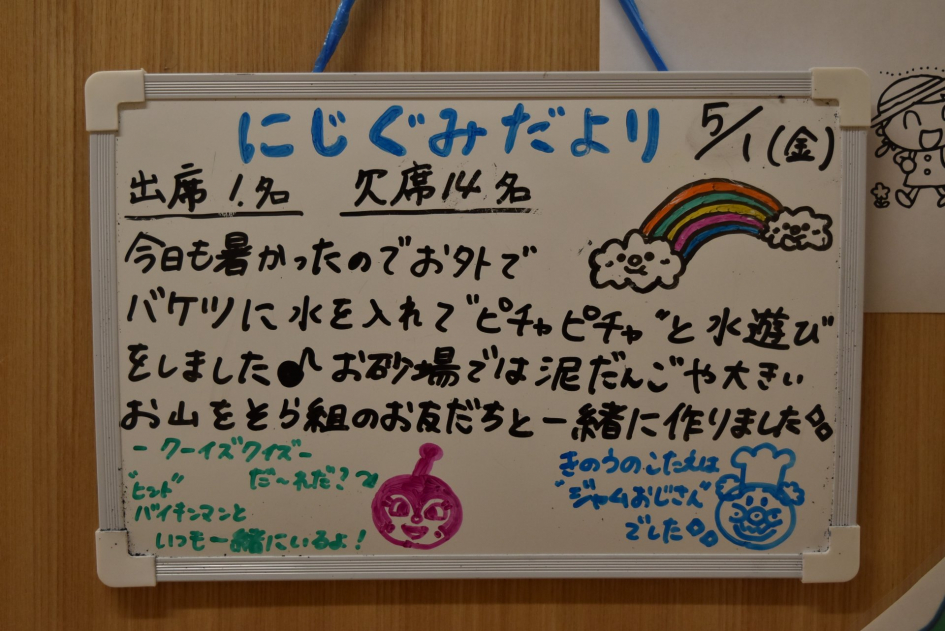 にじぐみだより 5/1(金)
出席1名 欠席14名
今日も暑かったのでお外で
バケツに水を入れて"ピチャピチャ"と水遊び
をしました♪お砂場では泥だんごや大きい
お山をそら組のお友だちと一緒に作りました
ークーイズクイズー
だ〜れだ?
"ヒント"
バイキンマンと
いつも一緒にいるよ!
きのうのこたえは
"ジャムおじさん"
でした